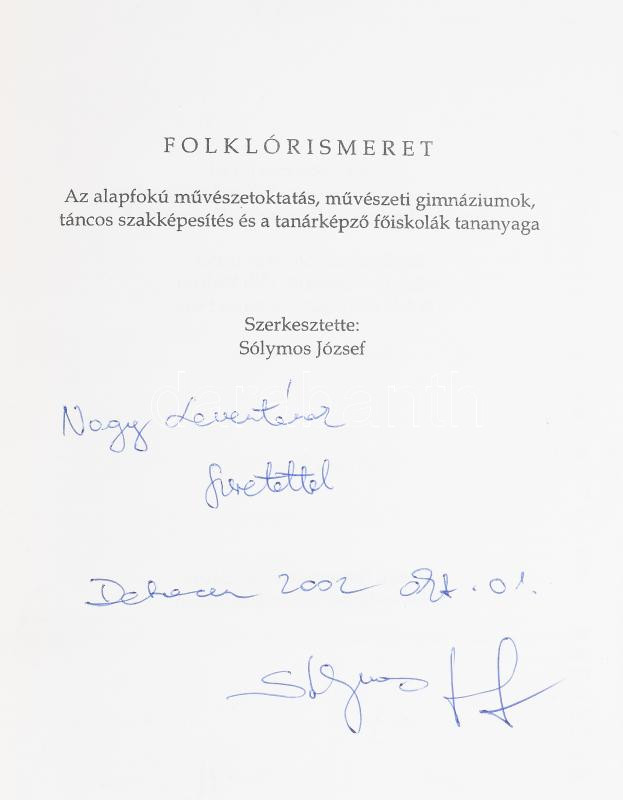 FOLKLÓRISMERET
Az alapfokú művészetoktatás, művészeti gimnáziumok,
táncos szakképesítés és a tanárképző főiskolák tananyaga
Szerkesztette:
Sólymos József
darabanth
Nagy Leventének
szeretettel
Debrecen 2002 okt. 01.
Sólymos